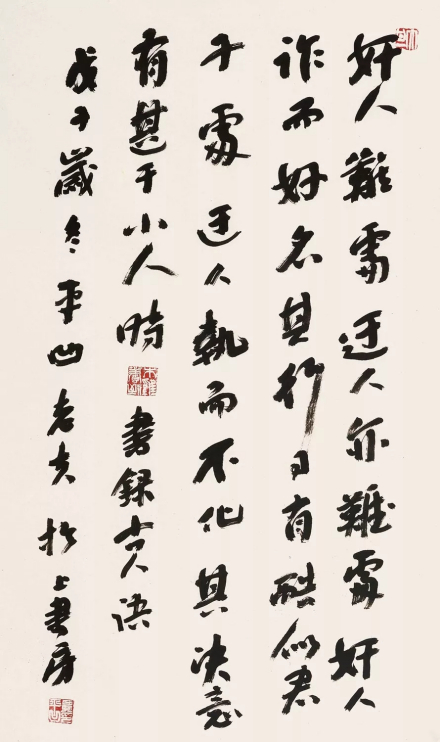 奸人難處迂人亦難處奸人
詐而好名其行有酷似君
子處迂人執而不化其決
有甚于小人時 書錄古人語
戊子歲冬平凹老夫於上書房